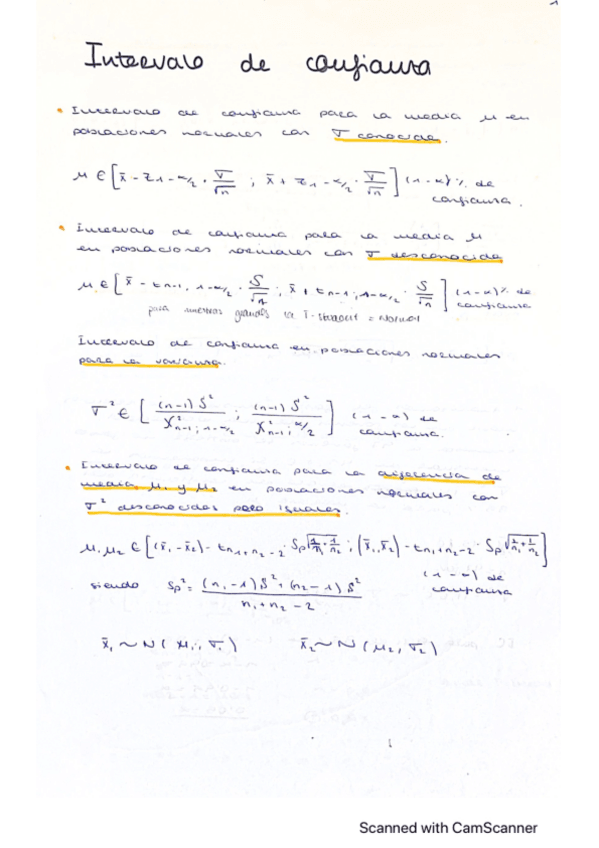 1
Intervalo de confianza
• Intervalo de confianza para la media μ en
poblaciones normales con σ conocida.
μ ∈ [x̄ - z1-α/2 · σ/√n ; x̄ + z1-α/2 · σ/√n] (1-α)% de
confianza.
• Intervalo de confianza para la media μ
en poblaciones normales con σ desconocida
μ ∈ [x̄ - tn-1, 1-α/2 · S/√n ; x̄ + tn-1; 1-α/2 · S/√n] (1-α)% de
confianza
para muestras grandes la T-Student = Normal
Intervalo de confianza en poblaciones normales
para la varianza.
σ² ∈ [(n-1)S²/χ²n-1; 1-α/2 ; (n-1)S²/χ²n-1; α/2] (1-α) de
confianza.
• Intervalo de confianza para la diferencia de
media, μ1 y μ2 en poblaciones normales con
σ² desconocidas pero iguales.
μ1 μ2 ∈ [(x̄1 - x̄2) - tn1+n2-2 · Sp√1/n1 + 1/n2 ; (x̄1, x̄2) - tn1+n2-2 · Sp√1/n1 + 1/n2]
(1-α) de
confianza
siendo Sp² = (n1-1)S² + (n2-1)S² / n1+n2-2
x̄1 ~ N(μ1, σ1) x̄2 ~ N(μ2, σ2)
Scanned with CamScanner